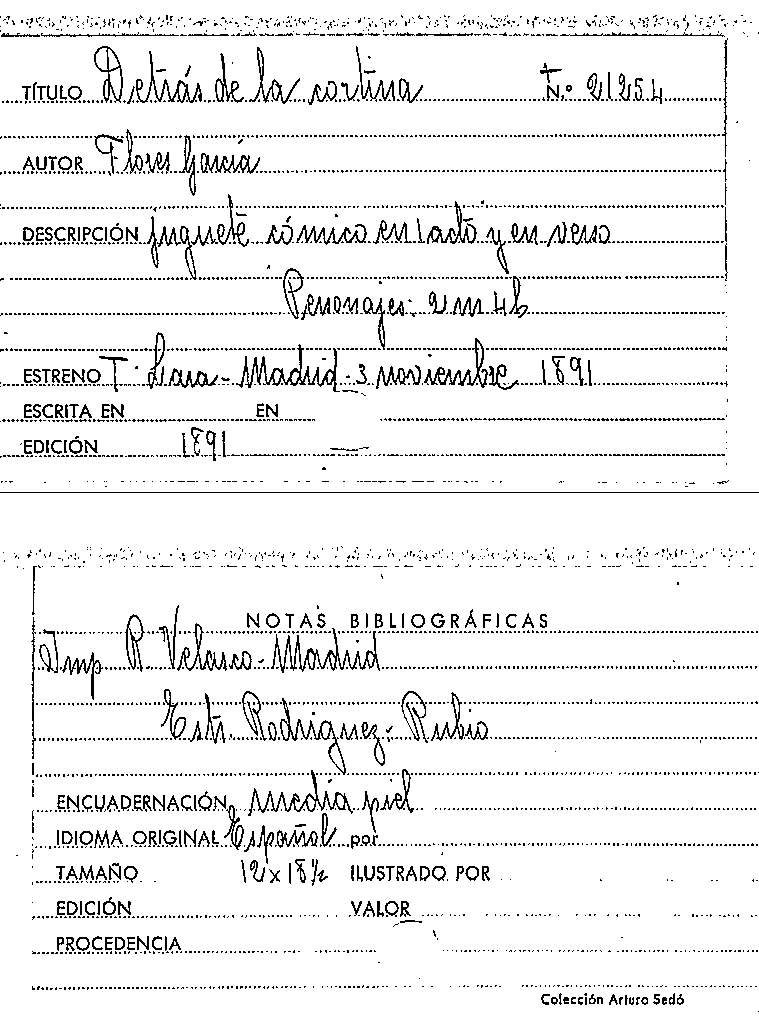 TÍTULO Detrás de la cortina N.º 21254
AUTOR Flores García
DESCRIPCIÓN juguete cómico en 1 acto y en verso
Personajes: 2 m 4 h
ESTRENO T. Lara - Madrid - 3 noviembre 1891
ESCRITA EN EN
EDICIÓN 1891
NOTAS BIBLIOGRÁFICAS
Imp R. Velasco - Madrid
Estr. Rodriguez - Rubio
ENCUADERNACIÓN media piel
IDIOMA ORIGINAL Español por
TAMAÑO 12 x 18 ½ ILUSTRADO POR
EDICIÓN VALOR
PROCEDENCIA
Colección Arturo Sedó